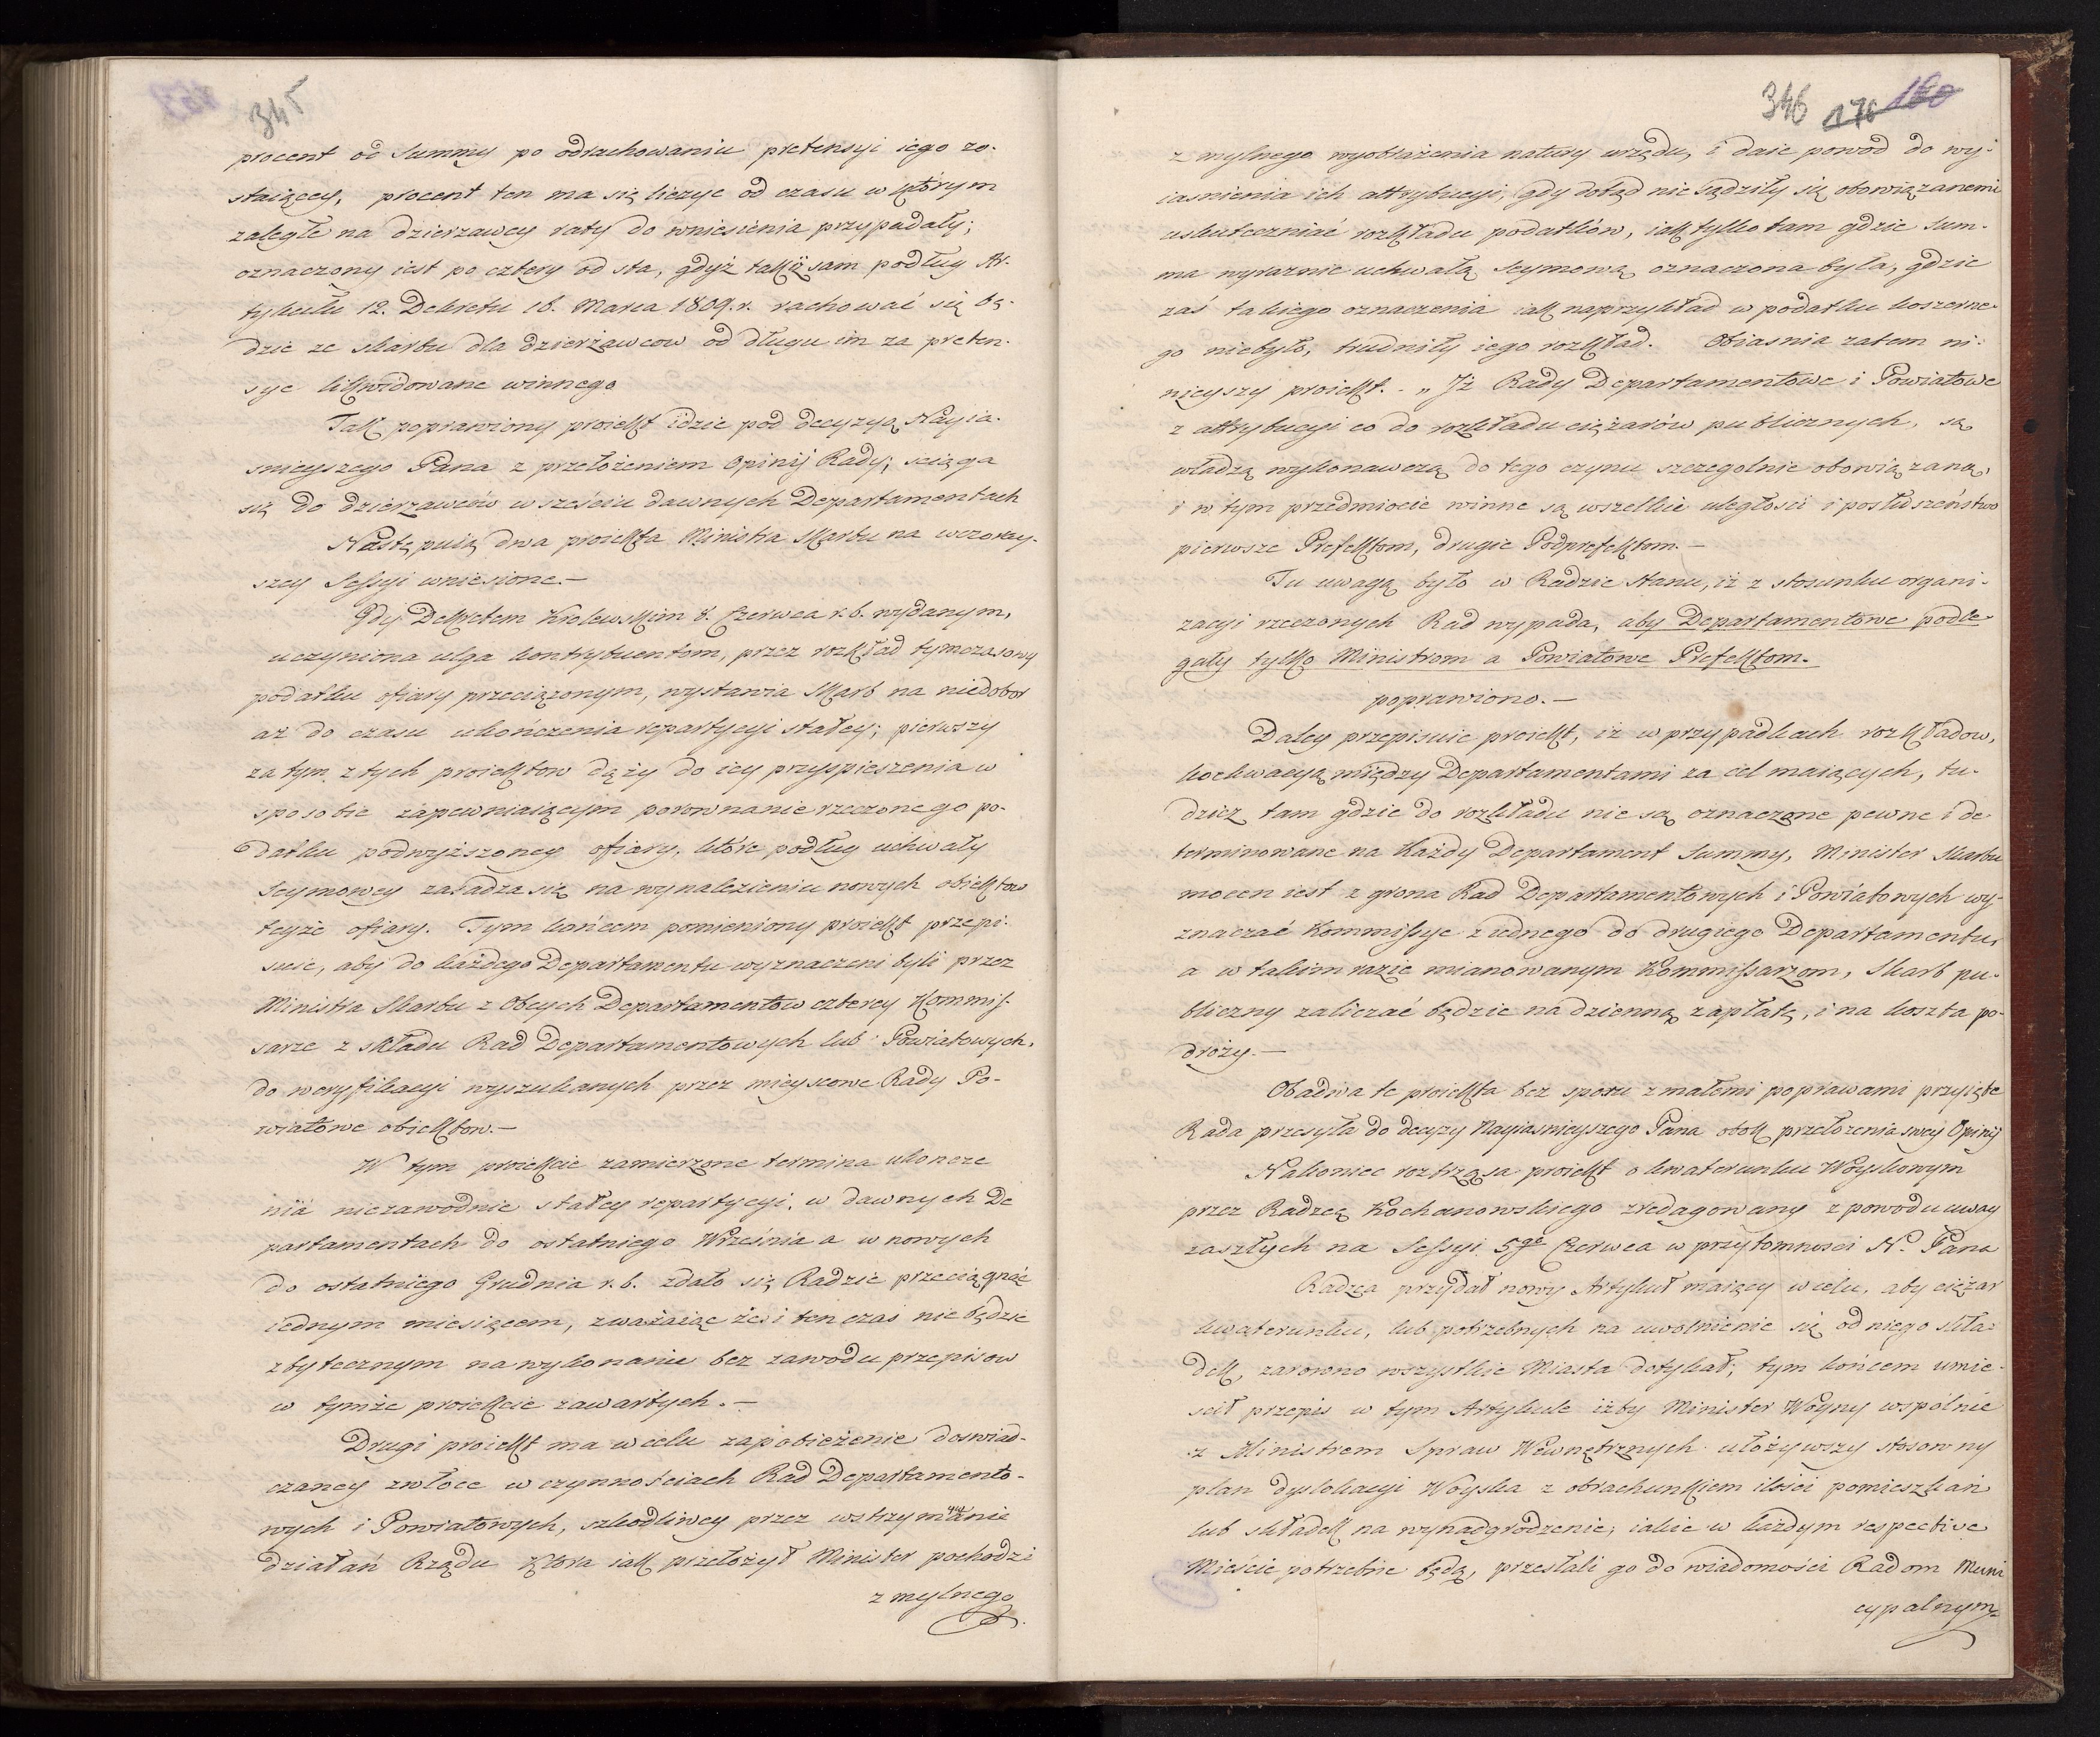 345
procent od Summy po odrachowaniu pretensyi iego zo-
staiącey, procent ten ma się liczyc od czasu w którym
zaległe na dzierzawcy raty do wniesienia przypadały;
oznaczony iest po cztery od sta, gdyż takiż sam podług Ar-
tykułu 12. Dekretu 16. Marca 1809. r. rachować się bę-
dzie ze skarbu dla dzierżawcow od długu im za preten-
sye likwidowane winnego
Tak poprawiony proiekt idzie pod decyzyą Nayia-
snieyszego Pana z przełożeniem Opinij Rady; sciąga
się do dzierzawców w sześciu dawnych Departamentach
Następuią dwa proiekta Ministra Skarbu na wczoray-
szey Sessyi wniesione.—
Gdy Dekretem Krolewskim 8. Czerwca r. b. wydanym,
uczyniona ulga kontrybuentóm, przez rozkład tymczasowy
podatku ofiary przeciążonym, wystawia Skarb na niedobor
aż do czasu ukończenia repartycyi stałey; pierwszy
zatym z tych proiektow dąży do icy przyspieszenia w
sposobie zapewniaiącym porownanie rzeczonego po-
datku podwyższoney ofiary, które podług uchwały
Seymowey zasadza się na wynalezieniu nowych obiektow
teyże ofiary. Tym końcem pomieniony proiekt przepi-
suie, aby do każdego Departamentu wyznaczeni byli przez
Ministra Skarbu z Obcych Departamentow czterey Kommis-
sarze z składu Rad Departamentowych lub Powiatowych,
do weryfikacyi wyszukanych przez mieyscowe Rady Po-
wiatowe obiektow.—
W tym proiekcie zamierzone termina ukoncze
nia niezawodnie stałey repartycyi, w dawnych De
partamentach do ostatniego Września a w nowych
do ostatniego Grudnia r. b. zdało się Radzie przeciągnąć
iednym miesiącem, zważaiąc że i ten czas nie będzie
zbytecznym na wykonanie bez zawodu przepisow
w tymże proiekcie zawartych.—
Drugi proiekt ma w celu zapobieżenie doswiad-
czaney zwłoce w czynnościach Rad Departamento-
wych i Powiatowych, szkodliwey przez wstrzymanie
działań Rządu która iak przełożył Minister pochodzi
z mylnego
346 176 160
z mylnego wyobrażenia natury urzędu, i daie powod do wy-
iasnienia ich attrybucyi, gdy dotąd nie sądziły się obowiązanemi
uskuteczniać rozkładu podatków, iak tylko tam gdzie sum-
ma wyraznie uchwałą Seymową oznaczona była, gdzie
zaś takiego oznaczenia iak naprzykład w podatku koszerne-
go niebyło, trudniły iego rozkład. Obiasnia zatem ni-
nieyszy proiekt. „Jż Rady Departamentowe i Powiatowe
z attrybucyi co do rozkładu ciężarów publicznych, są
władzą wykonawczą do tego czynu szczegolnie obowiązaną,
i w tym przedmiocie winne są wszelkie uległosci i posłuszeństwo
pierwsze Prefektom, drugie Podprefektom.—
Tu uwagą było w Radzie stanu, iż z stosunku organi-
zacyi rzeczonych Rad wypada, aby Departamentowe podle-
gały tylko Ministrom a Powiatowe Prefektom.
poprawiono.—
Daley przepisuie proiekt, iż w przypadkach rozkładow,
koekwacyą między Departamentami za cel maiących, tu-
dziez tam gdzie do rozkładu nie są oznaczone pewne i de-
terminowane na każdy Departament Summy, Minister Skarbu
mocen iest z grona Rad Departamentowych i Powiatowych wy-
znaczać Kommissye z iednego do drugiego Departamentu,
a w takim razie mianowanym Kommissarzom, Skarb pu-
bliczny zaliczać będzie na dzienną zapłatę, i na koszta po-
droży.—
Obadwa te proiekta bez sporu z małemi poprawami przyięte
Rada przesyła do decyzy Nayiasnieyszego Pana obok przełożenia swey Opinij
Nakoniec roztrząsa proiekt o kwaterunku Woyskowym
przez Radzcę Kochanowskiego zredagowany z powodu uwag
zaszłych na Sessyi 5go Czerwca w przytomnosci N. Pana
Radzca przydał nowy Artykuł maiący w celu, aby ciężar
kwaterunku, lub potrzebnych na uwolnienie się od niego skła-
dek, zarowno wszystkie Miasta dotykał; tym końcem umie-
scił przepis w tym Artykule iżby Minister Woyny wspólnie
z Ministrem Spraw Wewnętrznych ułożywszy stosowny
plan dyslokacyi Woyska z obrachunkiem ilości pomieszkań
lub składek na wynadgrodzenie, iakie w każdym respective
Mieście potrzebne będą, przesłali go do wiadomości Radom Muni
cypalnym